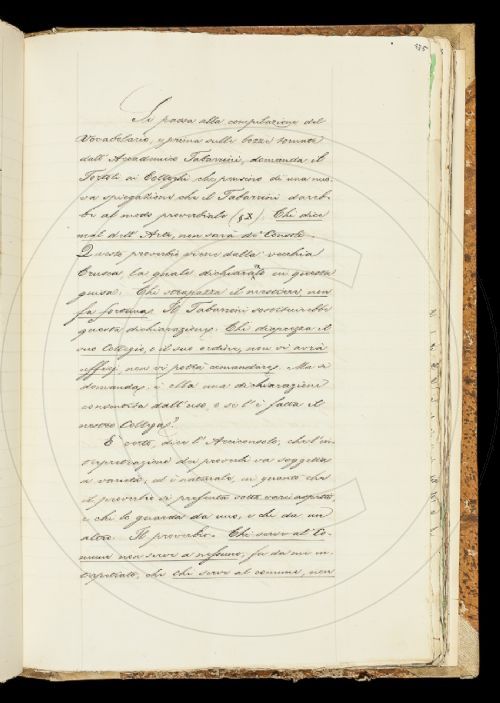 335
Si passa alla compilazione del
Vocabolario, e prima sulle bozze tornate
dall'Accademico Tabarrini, domanda il
Tortoli ai Colleghi che pensino di una nuo-
va spiegazione che il Tabarrini dareb-
be al modo proverbiale (§.X). Chi dice
mal dell'Arte, non sarà de' Consoli.
Questo proverbio viene dalla vecchia
Crusca, la quale dichiarato in questa
guisa: Chi strapazza il mestiere, non
fa fortuna. Il Tabarrini sostituirebbe
questa dichiarazione: Chi disprezza il
suo Collegio, o il suo ordine, non vi avrà
uffizj, non vi potrà comandare. Ma si
domanda, è ella una dichiarazione
consentita dall'uso, o se l'è fatta il
nostro Collega?
E' certo, dice l'Arciconsolo, che l'in-
terpretazione dei proverbi va soggetta
a varietà; ed è naturale, in quanto che
il proverbio si presenta sotto varii aspetti,
e chi lo guarda da uno, e chi da un
altro. Il proverbio: Chi serve al Co-
mune non serve a nessuno, fu da me in-
terpretato, che chi serve al comune, non